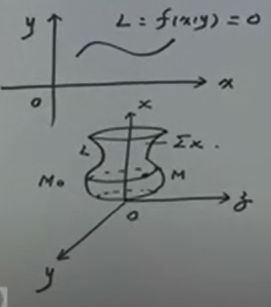 y L : f(x,y) = 0
0 x
x
L Σx.
M₀ M
0 z
y